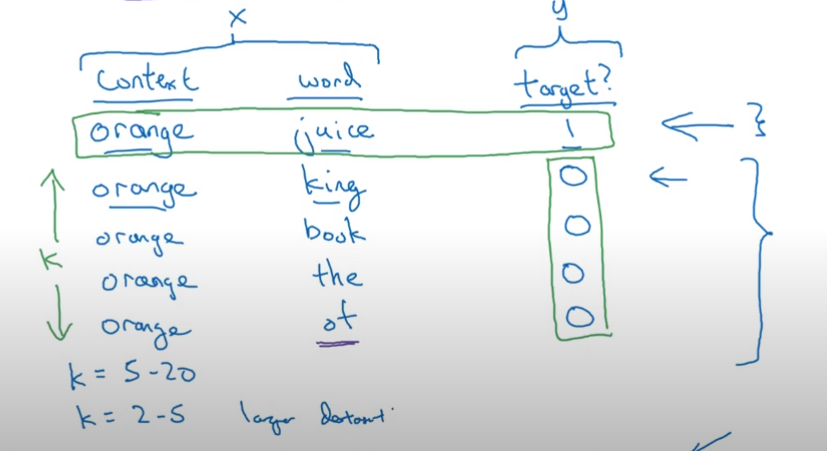 x y
context word target?
orange juice 1
orange king 0
orange book 0
k orange the 0
orange of 0
k = 5-20
k = 2-5 larger